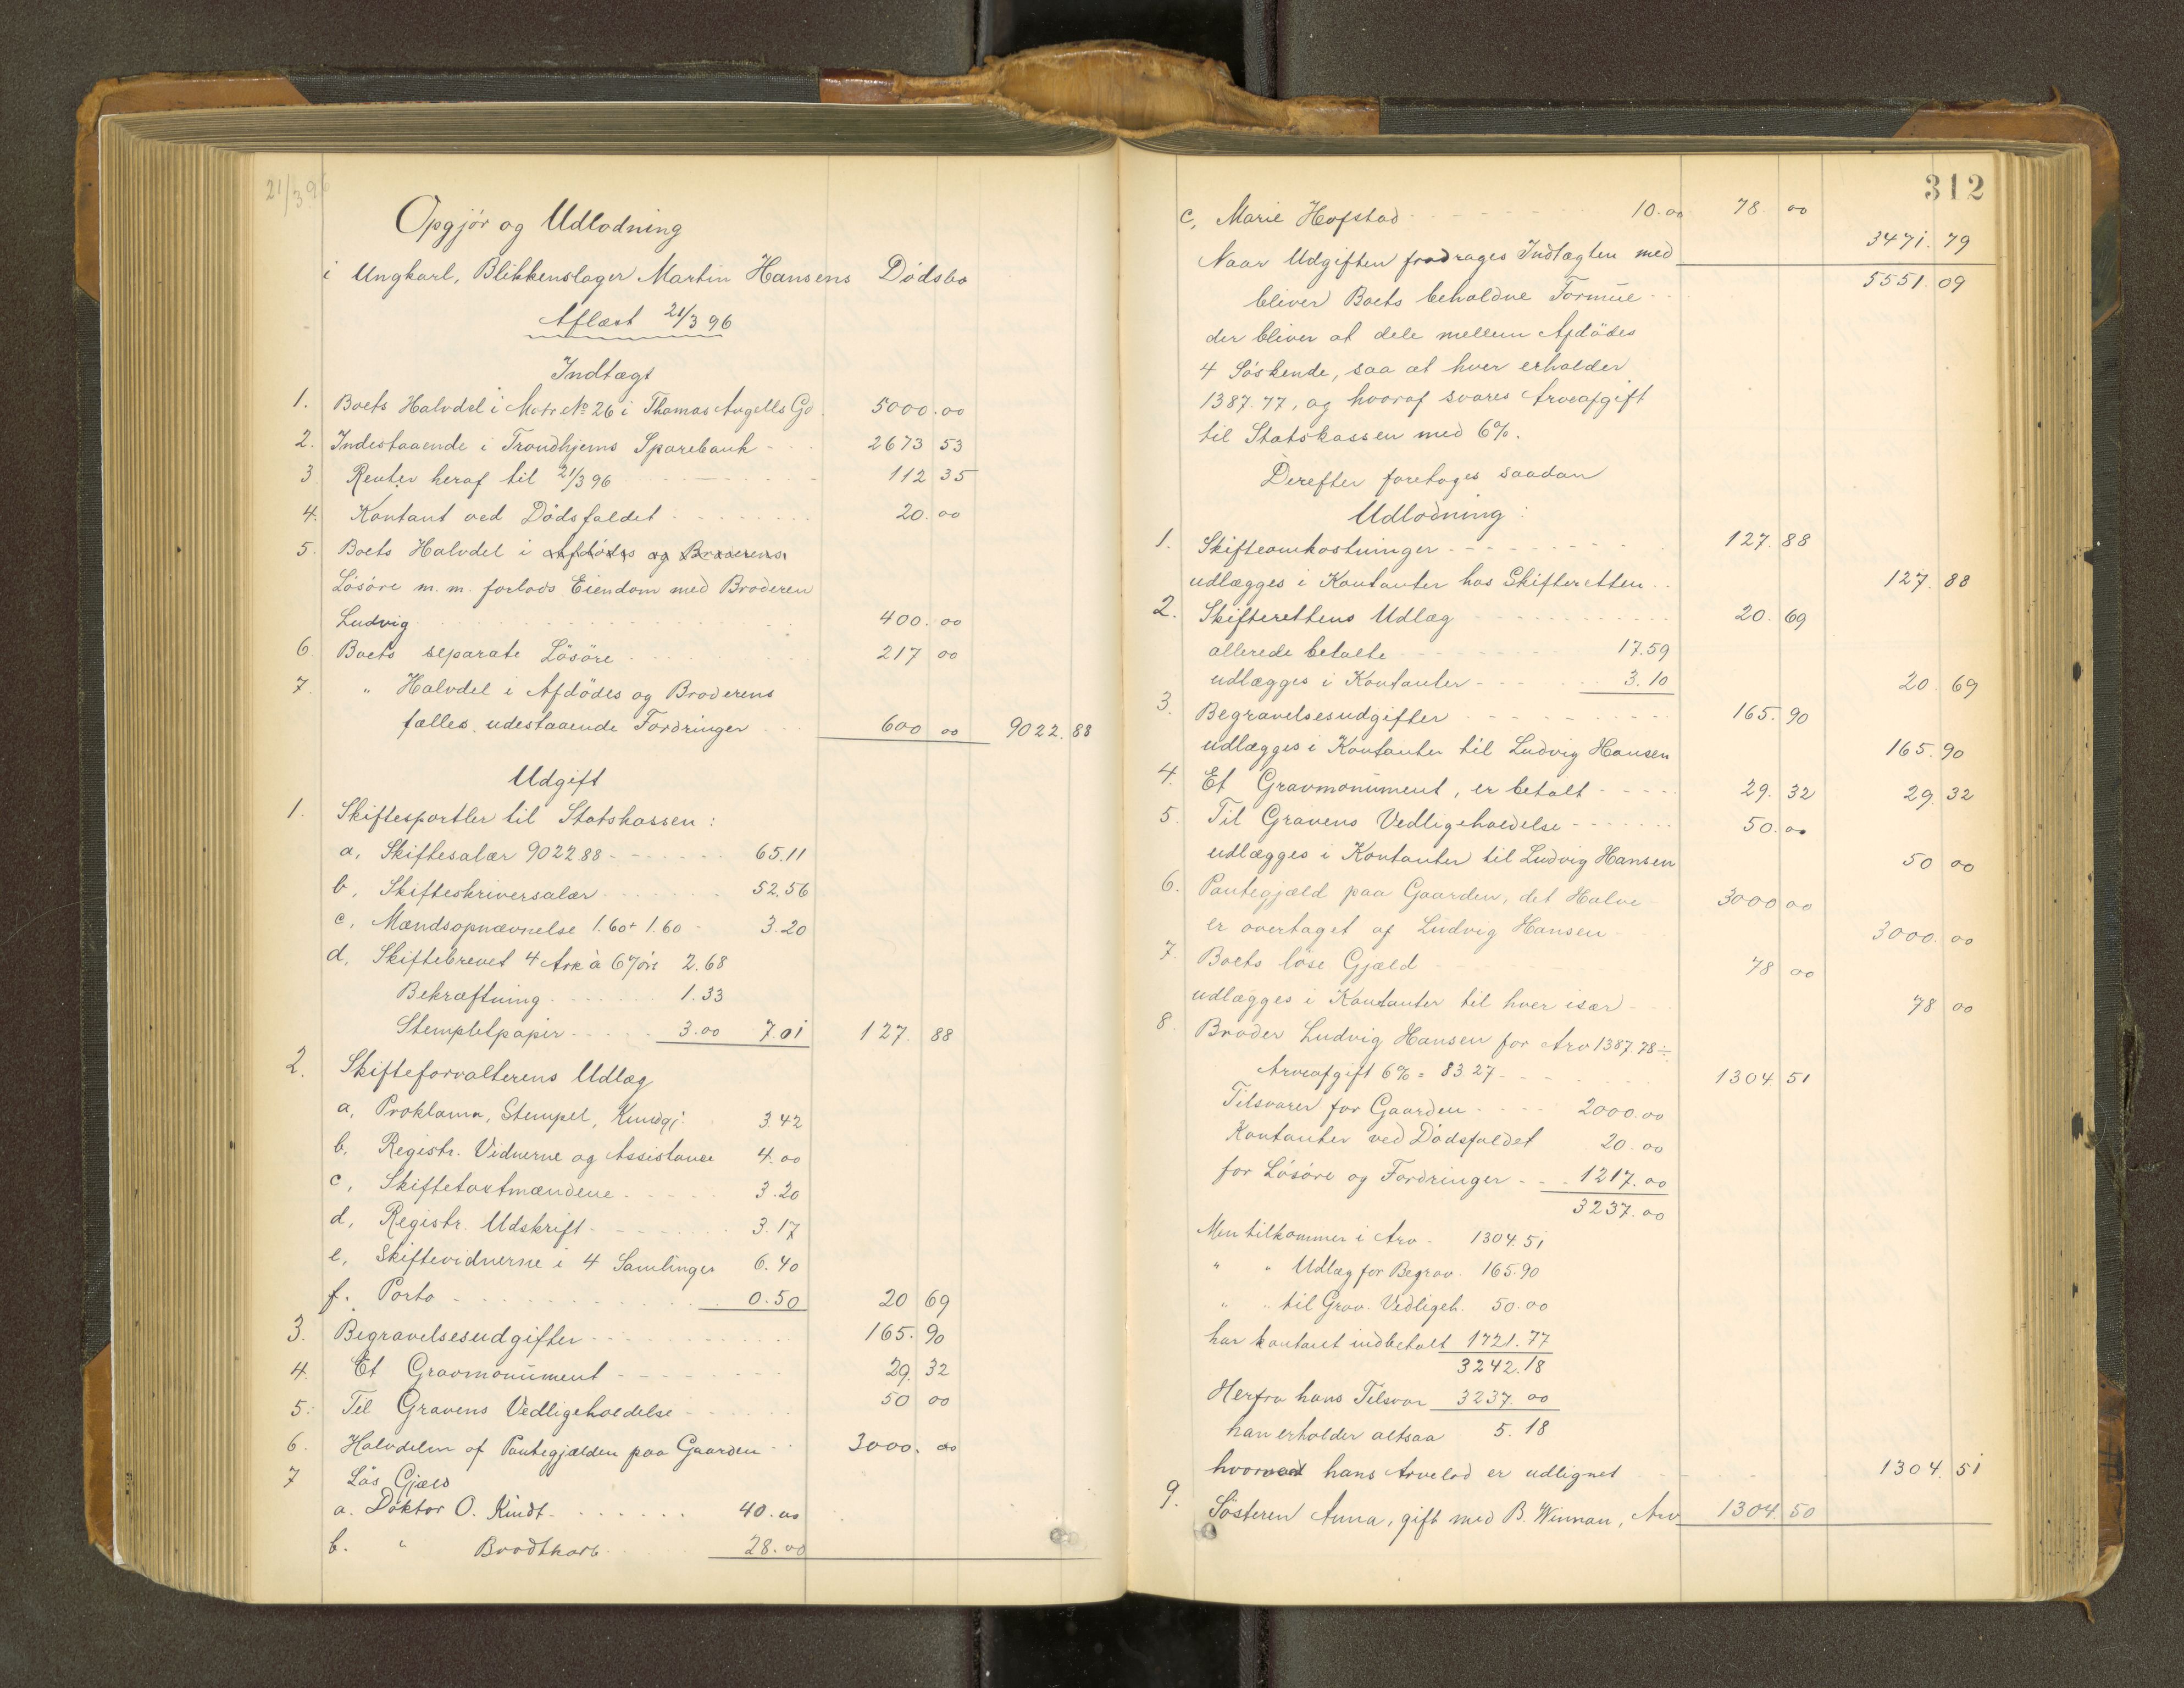 21/3 96
Opgjör og Udlodning
i Ungkarl, Blikkenslager Martin Hansens Dödsbo
Aflæst 21/3 96
Indtægt
1. Boets Halvdel i Matr No 26 i Thomas Angells Gd. 5000.00
2. Indestaaende i Trondhjems Sparebank - 2673 53
3 Renter heraf til 21/3 96 112 35
4. Kontant ved Dödsfaldet 20.00
5. Boets Halvdel i Afdödes og Broderens
Lösöre m.m. forlods Eiendom med Broderen
Ludvig 400.00
6. Boets separate Lösöre 217 00
7. " Halvdel i Afdödes og Broderens
fælles udestaaende Fordringer 600 00 9022.88
Udgift
1. Skiftesportler til Statskassen:
a, Skiftesalær 9022.88 65.11
b, Skifteskriversalær 52.56
c, Mændsopnævnelse 1.60+1.60 - 3.20
d, Skiftebrevet 4 Ark à 67 öre 2.68
Bekræftning 1.33
Stempletpapir 3.00 7.01 127. 88
2. Skifteforvalterens Udlæg
a, Proklama, Stempel, Kundgj. 3.42
b. Registr. Vidnerne og Assistance 4.00
c, Skiftetaxtmændene 3.20
d, Registr. Udskrift 3.17
e, Skiftevidnerne i 4 Samlinger 6.40
f. Porto 0.50 20 69
3. Begravelsesudgifter 165.90
4. Et Gravmonument 29.32
5. Til Gravens Vedligeholdelse 50 00
6. Halvdelen af Pantegjælden paa Gaarden 3000.00
7 Lös Gjæld
a. Doktor O. Kindt 40.00
b. " Brodtkorb 28.00
312
c, Marie Hofstad 10.00 78. 00
Naar Udgiften fradrages Indtægten med 3471.79
bliver Boets beholdne Formue 5551.09
der bliver at dele mellem Afdödes
4 Söskende, saa at hver erholder
1387.77, og hvoraf svares Arveafgift
til Statskassen med 6%.
Derefter foretages saadan
Udlodning:
1. Skifteomkostninger 127.88
udlægges i Kontanter hos Skifteretten 127.88
2. Skifterettens Udlæg 20.69
allerede betalte 17.59
udlægges i Kontanter 3.10 20.69
3. Begravelsesudgifter 165.90
udlægges i Kontanter til Ludvig Hansen 165.90
4. Et Gravmonument, er betalt 29.32 29.32
5. Til Gravens Vedligeholdelse 50.00
udlægges i Kontanter til Ludvig Hansen 50 00
6. Pantegjæld paa Gaarden, det Halve 3000 00
er overtaget af Ludvig Hansen 3000.00
7. Boets löse Gjæld 78 00
udlægges i Kontanter til hver især 78 00
8. Broder Ludvig Hansen for Arv 1387.78 ÷
Arveafgift 6% = 83.27 1304.51
Tilsvarer for Gaarden 2000.00
Kontanter ved Dödsfaldet 20.00
for Lösöre og Fordringer 1217.00
3237.00
Men tilkommer i Arv - 1304.51
" " Udlæg for Begrav. 165.90
" " til Grav. Vedligeh. 50.00
har kontant indbetalt 1721.77
3242.18
Herfra hans Tilsvar 3237.00
han erholder altsaa 5.18
hvorved hans Arvelod er udlignet 1304.51
9. Sösteren Anna, gift med B. Winnan, Arv 1304.50